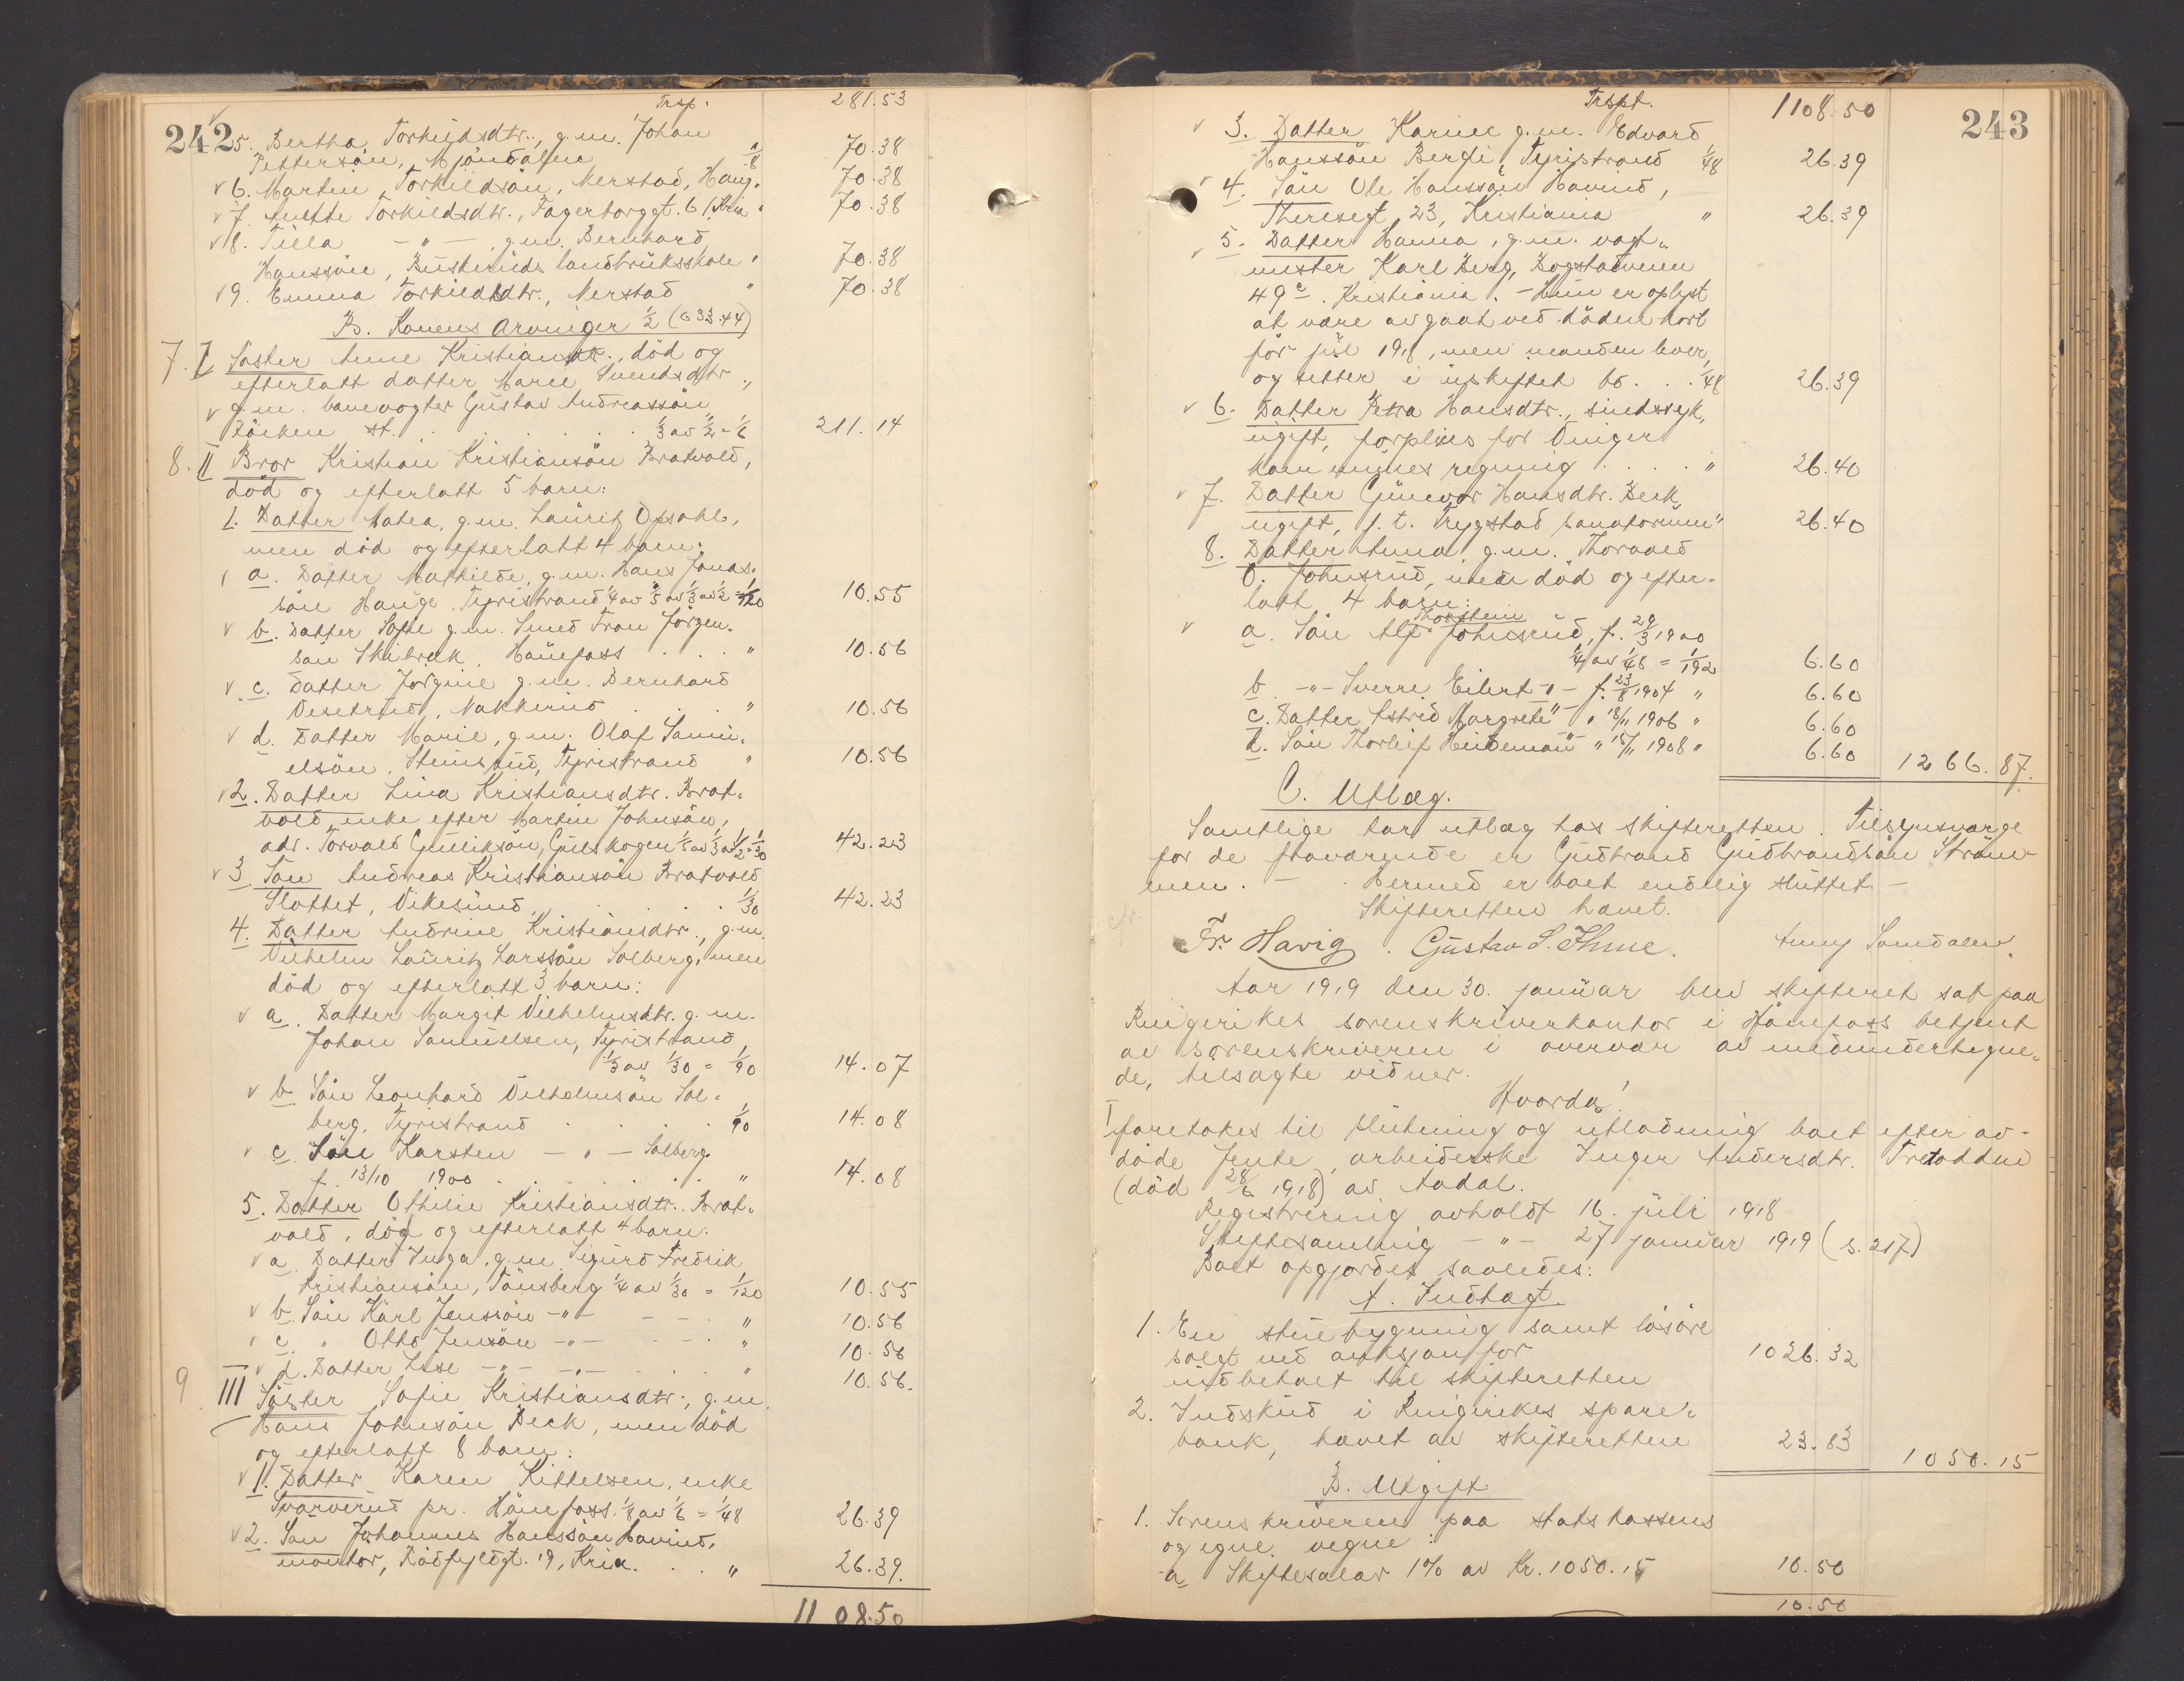 242
Trsp. 281.53
5. Bertha Torkildsdtr., g.m. Johan
Pettersön, Mjöndalen 1/8 70.38
6. Martin Torkildsön, Nerstad, Haug. 70.38
7. Anette Torkildsdtr., Fagerborggt. 6, Kria " 70.38
8. Tilla - " - , g.m. Bernhard
Hanssön, Buskeruds landbruksskole " 70.38
9. Emma Torkildsdtr., Nerstad " 70.38
B. Konens arvinger 1/2 (633.44)
7. I Söster Anne Kristiansdtr., död og
efterlatt datter Marie Svendsdtr.,
g.m. banevogter Gustav Andreassön
Röiken st. . . . . 1/3 av 1/2 = 1/6 211.14
8. II Bror Kristian Kristiansön Bratvold,
död og efterlatt 5 barn:
1. Datter Matea, g.m. Lauritz Opsahl,
men död og efterlatt 4 barn:
a. Datter Mathilde, g.m. Hans Jonas-
sön Hauge Tyristrand 1/4 av 1/5 av 1/3 av 1/2 = 1/120 10.55
b. Datter Sofie g.m. Smed Iron Jörgen-
sön Skibrek, Hönefoss . . . " 10.56
c. Datter Jörgine g.m. Bernhard
Vesetrud, Nakkerud . . . " 10.56
d. Datter Marie, g.m. Olaf Samu-
elsön, Stensrud, Tyristrand " 10.56
2. Datter Lina Kristiansdtr. Brat-
vold, enke efter Martin Johnsön,
adr. Torvald Gulliksön, Gulskogen 1/5 av 1/3 av 1/2 = 1/30 42.23
3. Sön Andreas Kristiansön Bratvold
Slottet, Vikesund . . . . . 1/30 42.23
4. Datter Andrine Kristiansdtr., g.m.
Vilhelm Lauritz Larssön Solberg, men
död og efterlatt 3 barn:
a. Datter Margit Vilhelmsdtr. g.m.
Johan Samuelsen, Tyristrand,
1/3 av 1/30 = 1/90 14.07
b. Sön Leonhard Vilhelmsön Sol-
berg, Tyristrand . . . . 1/90 14.08
c. Sön Karsten - " - Solberg
f. 13/10 1900 . . . . . . " 14.08
5. Datter Othilie Kristiansdtr. Brat-
vold, död og efterlatt 4 barn:
a. Datter Inga, g.m. Sigurd Fredrik
Kristiansön, Tönsberg 1/4 av 1/30 = 1/120 10.55
b. Sön Karl Jenssön - " - - - - " 10.56
c. " Otto Jensön - " - - - " 10.56
d. Datter Lise - " - - " - . . " 10.56.
9 III Söster Sofie Kristiansdtr., g.m.
Hans Johnsön Beck, men död
og efterlatt 8 barn:
1. Datter Karen Kittelsen, enke
Svarverud pr. Hönefoss. 1/8 av 1/6 = 1/48 26.39
2. Sön Johannes Hanssön Havind,
montör, Rödfyldgt. 19, Kria. . . " 26.39.
1108.50
243
Trspt. 1108.50
3. Datter Karine g.m. Edvard
Hanssön Bergli, Tyristrand 1/48 26.39
4. Sön Ole Hanssön Havind,
Theresegt. 23, Kristiania " 26.39
5. Datter Hanna, g.m. vagt-
mester Karl Berg, Bogstadveien
49 c. Kristiania. - Hun er oplyst
at være avgaat ved döden kort
för jul 1918, men manden lever,
og sitter i uskiftet bo. . . 1/48 26.39
6. Datter Petra Hansdtr., sindssyk,
ugift, forpleies for Ringer
kommunes regning . . . . " 26.40
7. Datter Gunevor Hansdtr. Beck,
ugift, f.t. Trygstad sanatorium " 26.40
8. Datter Anna g.m. Thorvald
O. Johnsrud, men död og efter-
latt 4 barn:
a. Sön Alf Thorstein Johnsrud, f. 29/3 1900
1/4 av 1/48 = 1/192 6.60
b. - " - Sverre Eilert - " - f. 23/8 1904 " 6.60
c. Datter Astrid Margrete " " 18/11 1906 " 6.60
d. Sön Thorleif Heideman - " " 15/11 1908 " 6.60 1266.87.
C. Utlæg.
Samtlige tar utlæg hos skifteretten. Tilsynsværge
for de fraværende er Gudbrand Gudbrandsön Ström-
men. - . Hermed er boet endelig sluttet. -
Skifteretten hævet.
Fr. Havig. Gustav S. Thune. Anny Somdalen.
Aar 1919 den 30. januar blev skifteret sat paa
Ringerikes sorenskriverkontor i Hönefoss betjent
av sorenskriveren i overvær av medundertegne-
de, tilsagte vidner.
Hvorda!
I foretokes til slutning og utlodning boet efter av-
döde Jente, arbeiderske Inger Andersdtr. Tretodden
(död 28/6 1918) av Aadal.
Registrering avholdt 16. juli 1918
Skiftesamling - " - 27 januar 1919 (s. 217)
Boet opgjordes saaledes:
A. Indtægt.
1. En stuebygning samt lösöre
solgt ved auksjon for
indbetalt til skifteretten 1026.32
2. Indskud i Ringerikes spare-
bank, hævet av skifteretten 23.83 1050.15
B. Utgift
1. Sorenskriveren paa statskassens
og egne vegne:
a Skiftesalær 1% av Kr. 1050.15 10.50
10.50